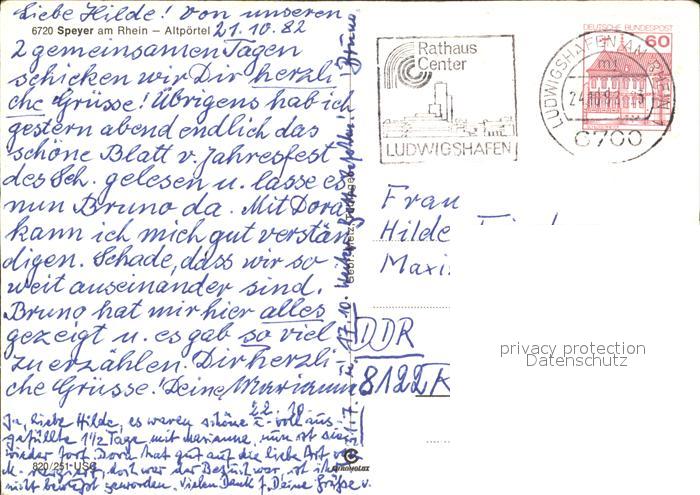 Liebe Hilde! Von unseren
6720 Speyer am Rhein – Altpörtel 21.10.82
2 gemeinsamen Tagen
schicken wir Dir herzli-
che Grüsse! Übrigens hab ich
gestern abend endlich das
schöne Blatt v. Jahresfest
des Sch. gelesen u. lasse es
nun Bruno da. Mit Dora
kann ich mich gut verstän-
digen. Schade, dass wir so
weit auseinander sind.
Bruno hat mir hier alles
gezeigt u. es gab so viel
zu erzählen. Dir herzli-
che Grüsse! Deine Marianne
22.10.
Ja, liebe Hilde, es waren schöne u. voll aus-
gefüllte 1½ Tage mit Marianne, nun ist sie
wieder fort. Dora hat gut auf die liebe Art v.
M. reagiert, doch war der Besuch war, ist ihr
nicht bewußt geworden. Vielen Dank f. Deine Grüße v.
820/251 USC
17.10.
Rathaus
Center
LUDWIGSHAFEN
DEUTSCHE BUNDESPOST
60
LUDWIGSHAFEN AM RHEIN
mt
6700
Frau
Hilde
Maxi
DDR
8122
privacy protection
Datenschutz